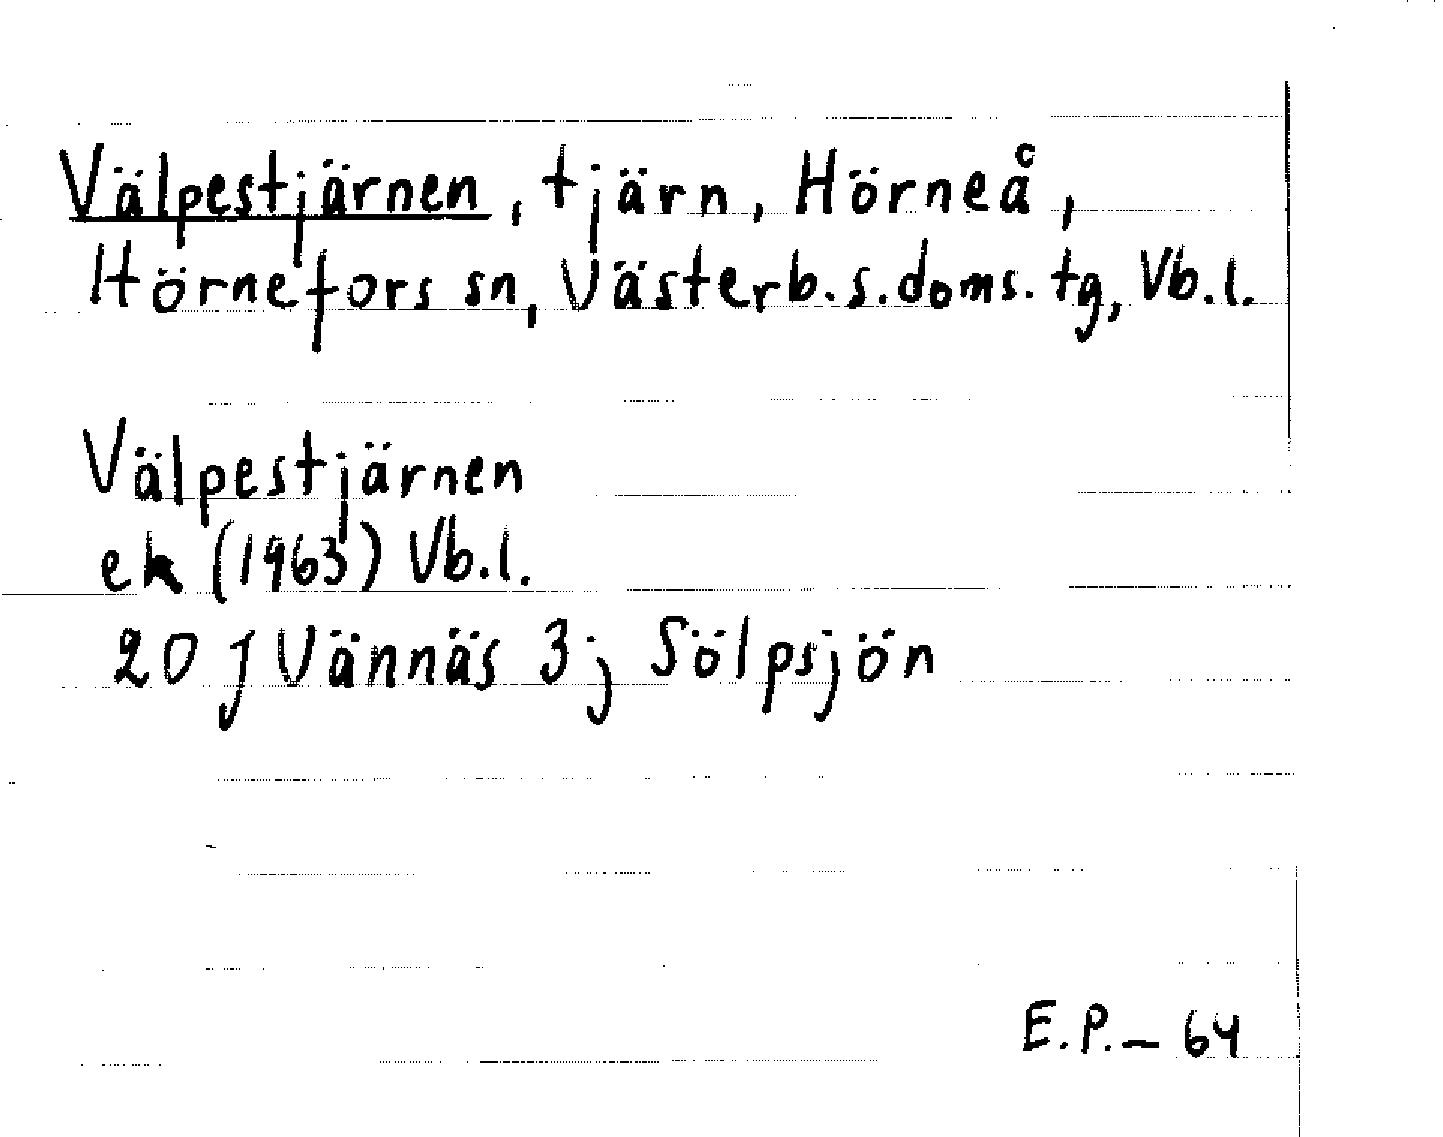 Välpestjärnen, tjärn, Hörneå,
Hörnefors sn, Västerb.s.doms.tg, Vb.l.
Välpestjärnen
ek (1963) Vb.l.
20 J Vännäs 3j Sölpsjön
E.P.– 64